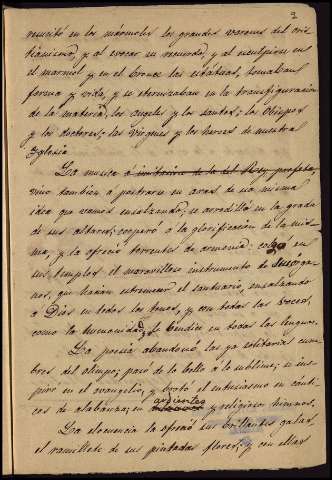 2
resucitó en los mármoles los grandes varones del cris-
tianismo, y al evocar su recuerdo, y al esculpirse en
el marmol y en el bronce las estátuas, tomaban
forma y vida, y se eternizaban en la transfiguracion
de la materia, los angeles y los santos; los obispos
y los doctores; las vírgenes y los heroes de nuestra
Iglesia.
La musica á imitacion de la del Rey profeta,
vino tambien á postrarse en aras de la misma
idea que vamos ensalzando, se arrodilló en la grada
de sus altares; cooperó á la glorificacion de la mis-
ma, y la ofreció torrentes de armonia: colgó en
sus templos el maravilloso instrumento de sus órga-
nos, que hacian estremecer el santuario, ensalzando
á Dios en todos los tonos, y con todas las voces,
como la humanidad le bendice en todas las lenguas.
La poesia abandonó las ya solitarias cum-
bres del olimpo; pasó de lo bello á lo sublime; se ins-
piró en el evangelio, y brotó el entusiasmo en cánti-
cos de alabanza; en
ardientes
y religiosos himnos.
La elocuencia la ofreció sus brillantes galas,
el ramillete de sus pintadas flores; y con ellas